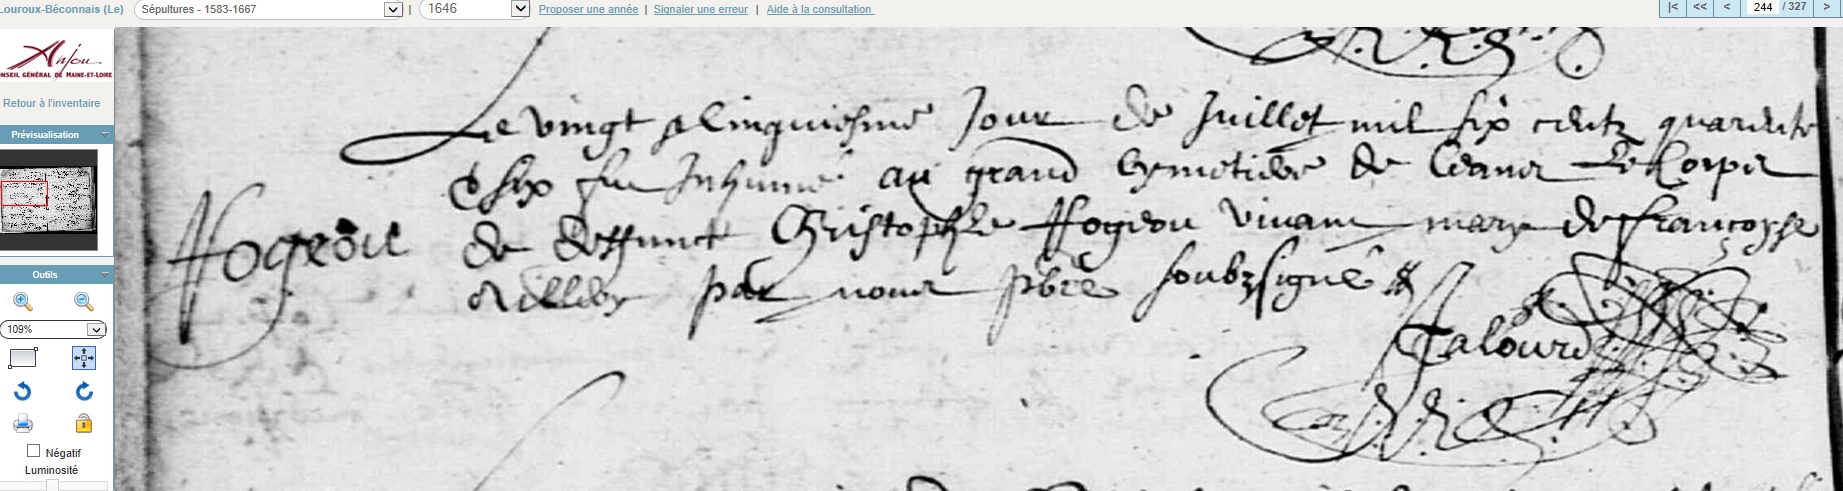 Louroux-Béconnais (Le)
Sépultures - 1583-1667
|
1646
Proposer une année | Signaler une erreur | Aide à la consultation
|< << < 244 / 327 >
Anjou
CONSEIL GÉNÉRAL DE MAINE-ET-LOIRE
Retour à l'inventaire
Prévisualisation
Outils
109%
Négatif
Luminosité
Le vingt & cinquiesme jour de juillet mil six centz quarante
& six fut inhumé au grand cymetiere de ceans le corps
Fogeou
de deffunct Christophle Fogeou vivant mary de Françoyse
par nous pbre soubzsigné
Jalourd